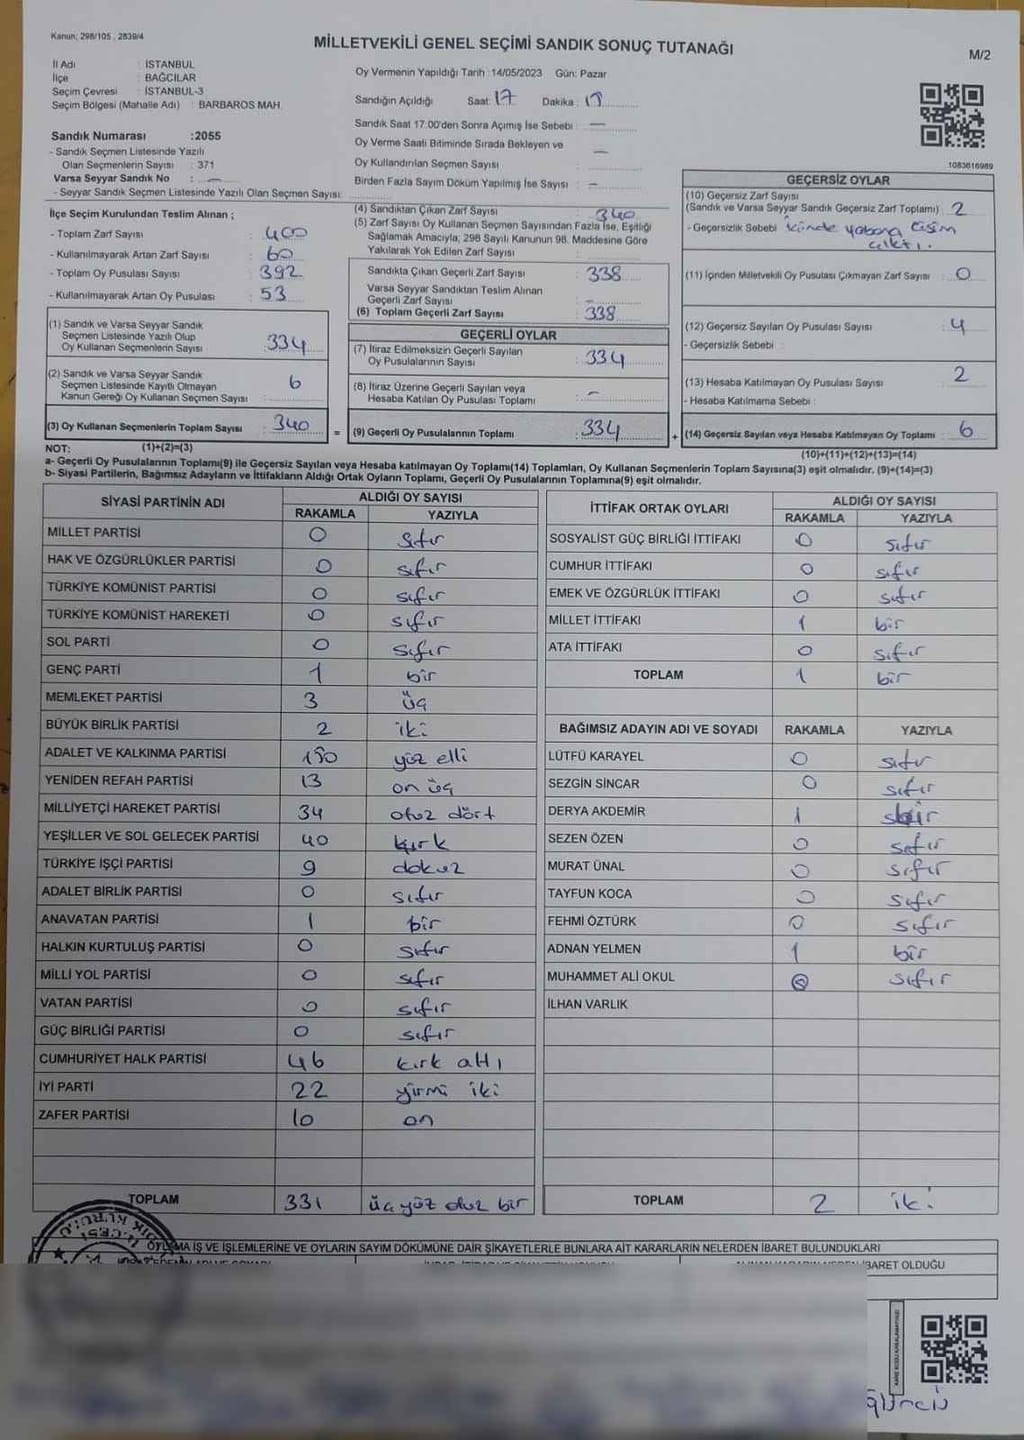 Kanun; 298/105 , 2839/4
MİLLETVEKİLİ GENEL SEÇİMİ SANDIK SONUÇ TUTANAĞI
M/2
İl Adı : İSTANBUL
İlçe : BAĞCILAR
Seçim Çevresi : İSTANBUL-3
Seçim Bölgesi (Mahalle Adı) : BARBAROS MAH
Oy Vermenin Yapıldığı Tarih :14/05/2023 Gün: Pazar
Sandığın Açıldığı Saat: 17 Dakika:
Sandık Saat 17:00'den Sonra Açımış İse Sebebi : —
Oy Verme Saati Bitiminde Sırada Bekleyen ve
Oy Kullandırılan Seçmen Sayısı : —
Birden Fazla Sayım Döküm Yapılmış İse Sayısı : —
Sandık Numarası :2055
- Sandık Seçmen Listesinde Yazılı
Olan Seçmenlerin Sayısı : 371
Varsa Seyyar Sandık No : —
- Seyyar Sandık Seçmen Listesinde Yazılı Olan Seçmen Sayısı:
1083616989
İlçe Seçim Kurulundan Teslim Alınan ;
- Toplam Zarf Sayısı : 400
- Kullanılmayarak Artan Zarf Sayısı : 60
- Toplam Oy Pusulası Sayısı : 392
- Kullanılmayarak Artan Oy Pusulası : 53
(1) Sandık ve Varsa Seyyar Sandık
Seçmen Listesinde Yazılı Olup
Oy Kullanan Seçmenlerin Sayısı : 334
(2) Sandık ve Varsa Seyyar Sandık
Seçmen Listesinde Kayıtlı Olmayan
Kanun Gereği Oy Kullanan Seçmen Sayısı : 6
(3) Oy Kullanan Seçmenlerin Toplam Sayısı : 340
(1)+(2)=(3)
(4) Sandıktan Çıkan Zarf Sayısı : 340
(5) Zarf Sayısı Oy Kullanan Seçmen Sayısından Fazla İse, Eşitliği
Sağlamak Amacıyla; 298 Sayılı Kanunun 98. Maddesine Göre
Yakılarak Yok Edilen Zarf Sayısı :
Sandıkta Çıkan Geçerli Zarf Sayısı : 338
Varsa Seyyar Sandıktan Teslim Alınan
Geçerli Zarf Sayısı : —
(6) Toplam Geçerli Zarf Sayısı : 338
GEÇERLİ OYLAR
(7) İtiraz Edilmeksizin Geçerli Sayılan
Oy Pusulalarının Sayısı : 334
(8) İtiraz Üzerine Geçerli Sayılan veya
Hesaba Katılan Oy Pusulası Toplamı : —
= (9) Geçerli Oy Pusulalarının Toplamı : 334
GEÇERSİZ OYLAR
(10) Geçersiz Zarf Sayısı
(Sandık ve Varsa Seyyar Sandık Geçersiz Zarf Toplamı) : 2
- Geçersizlik Sebebi : içinde yabancı cisim
çıktı.
(11) İçinden Milletvekili Oy Pusulası Çıkmayan Zarf Sayısı : 0
(12) Geçersiz Sayılan Oy Pusulası Sayısı : 4
- Geçersizlik Sebebi :
(13) Hesaba Katılmayan Oy Pusulası Sayısı : 2
- Hesaba Katılmama Sebebi :
+ (14) Geçersiz Sayılan veya Hesaba Katılmayan Oy Toplamı : 6
(10)+(11)+(12)+(13)=(14)
NOT:
a- Geçerli Oy Pusulalarının Toplamı(9) ile Geçersiz Sayılan veya Hesaba katılmayan Oy Toplamı(14) Toplamları, Oy Kullanan Seçmenlerin Toplam Sayısına(3) eşit olmalıdır. (9)+(14)=(3)
b- Siyasi Partilerin, Bağımsız Adayların ve İttifakların Aldığı Ortak Oyların Toplamı, Geçerli Oy Pusulalarının Toplamına(9) eşit olmalıdır.
SİYASİ PARTİNİN ADI ALDIĞI OY SAYISI
RAKAMLA YAZIYLA
MİLLET PARTİSİ 0 sıfır
HAK VE ÖZGÜRLÜKLER PARTİSİ 0 sıfır
TÜRKİYE KOMÜNİST PARTİSİ 0 sıfır
TÜRKİYE KOMÜNİST HAREKETİ 0 sıfır
SOL PARTİ 0 sıfır
GENÇ PARTİ 1 bir
MEMLEKET PARTİSİ 3 üç
BÜYÜK BİRLİK PARTİSİ 2 iki
ADALET VE KALKINMA PARTİSİ 150 yüz elli
YENİDEN REFAH PARTİSİ 13 on üç
MİLLİYETÇİ HAREKET PARTİSİ 34 otuz dört
YEŞİLLER VE SOL GELECEK PARTİSİ 40 kırk
TÜRKİYE İŞÇİ PARTİSİ 9 dokuz
ADALET BİRLİK PARTİSİ 0 sıfır
ANAVATAN PARTİSİ 1 bir
HALKIN KURTULUŞ PARTİSİ 0 sıfır
MİLLİ YOL PARTİSİ 0 sıfır
VATAN PARTİSİ 0 sıfır
GÜÇ BİRLİĞİ PARTİSİ 0 sıfır
CUMHURİYET HALK PARTİSİ 46 kırk altı
İYİ PARTİ 22 yirmi iki
ZAFER PARTİSİ 10 on
TOPLAM 331 üç yüz otuz bir
İTTİFAK ORTAK OYLARI ALDIĞI OY SAYISI
RAKAMLA YAZIYLA
SOSYALİST GÜÇ BİRLİĞİ İTTİFAKI 0 sıfır
CUMHUR İTTİFAKI 0 sıfır
EMEK VE ÖZGÜRLÜK İTTİFAKI 0 sıfır
MİLLET İTTİFAKI 1 bir
ATA İTTİFAKI 0 sıfır
TOPLAM 1 bir
BAĞIMSIZ ADAYIN ADI VE SOYADI RAKAMLA YAZIYLA
LÜTFÜ KARAYEL 0 sıfır
SEZGİN SİNCAR 0 sıfır
DERYA AKDEMİR 1 bir
SEZEN ÖZEN 0 sıfır
MURAT ÜNAL 0 sıfır
TAYFUN KOCA 0 sıfır
FEHMİ ÖZTÜRK 0 sıfır
ADNAN YELMEN 1 bir
MUHAMMET ALİ OKUL 0 sıfır
İLHAN VARLIK
TOPLAM 2 iki
OYLAMA İŞ VE İŞLEMLERİNE VE OYLARIN SAYIM DÖKÜMÜNE DAİR ŞİKAYETLERLE BUNLARA AİT KARARLARIN NELERDEN İBARET BULUNDUKLARI
İBARET OLDUĞU